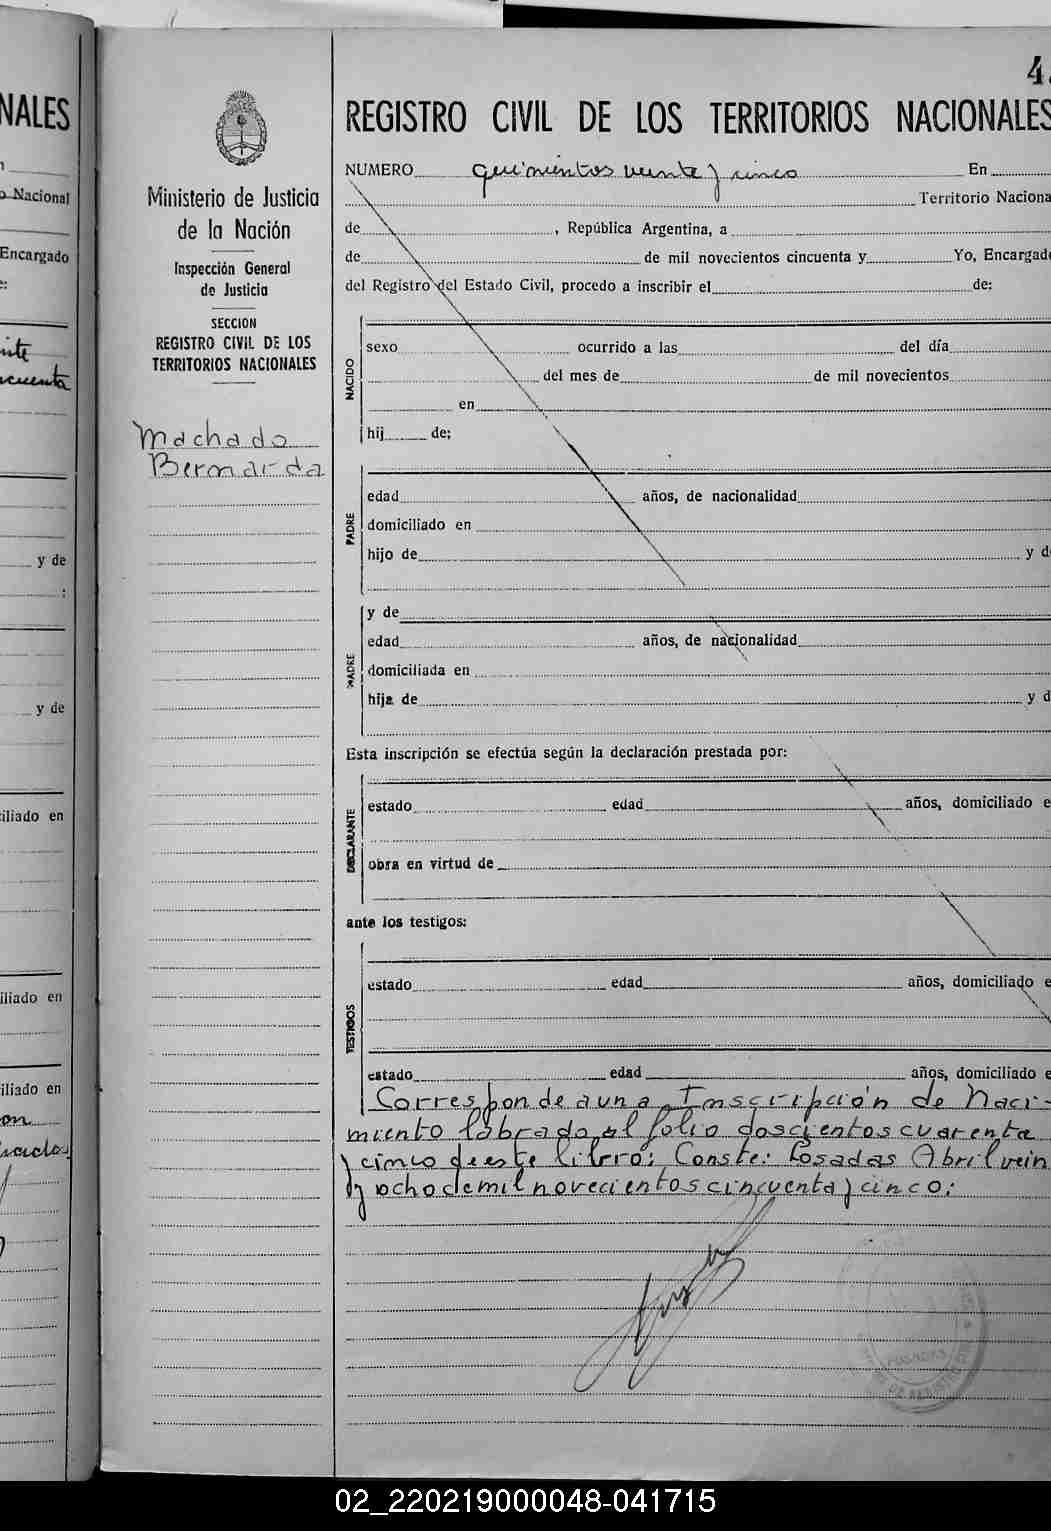 NALES
o Nacional
Encargado
e:
cuenta
y de
:
y de
iliado en
iliado en
iliado en
Ministerio de Justicia
de la Nación
Inspección General
de Justicia
SECCION
REGISTRO CIVIL DE LOS
TERRITORIOS NACIONALES
Machado
Bernarda
4
REGISTRO CIVIL DE LOS TERRITORIOS NACIONALES
NUMERO quinientos veinte y cinco En
Territorio Naciona
de , República Argentina, a
de de mil novecientos cincuenta y Yo, Encargad
del Registro del Estado Civil, procedo a inscribir el de:
NACIDO
sexo ocurrido a las del día
del mes de de mil novecientos
en
hij de:
PADRE
edad años, de nacionalidad
domiciliado en
hijo de y d
y de
MADRE
edad años, de nacionalidad
domiciliada en
hija de y d
Esta inscripción se efectúa según la declaración prestada por:
DECLARANTE
estado edad años, domiciliado e
obra en virtud de
ante los testigos:
TESTIGOS
estado edad años, domiciliado e
estado edad años, domiciliado e
Corresponde a una Inscripción de Naci-
miento labrada al folio doscientos cuarenta
y cinco de este libro; Conste: Posadas Abril vein
y ocho de mil novecientos cincuenta y cinco:
POSADAS
02_220219000048-041715